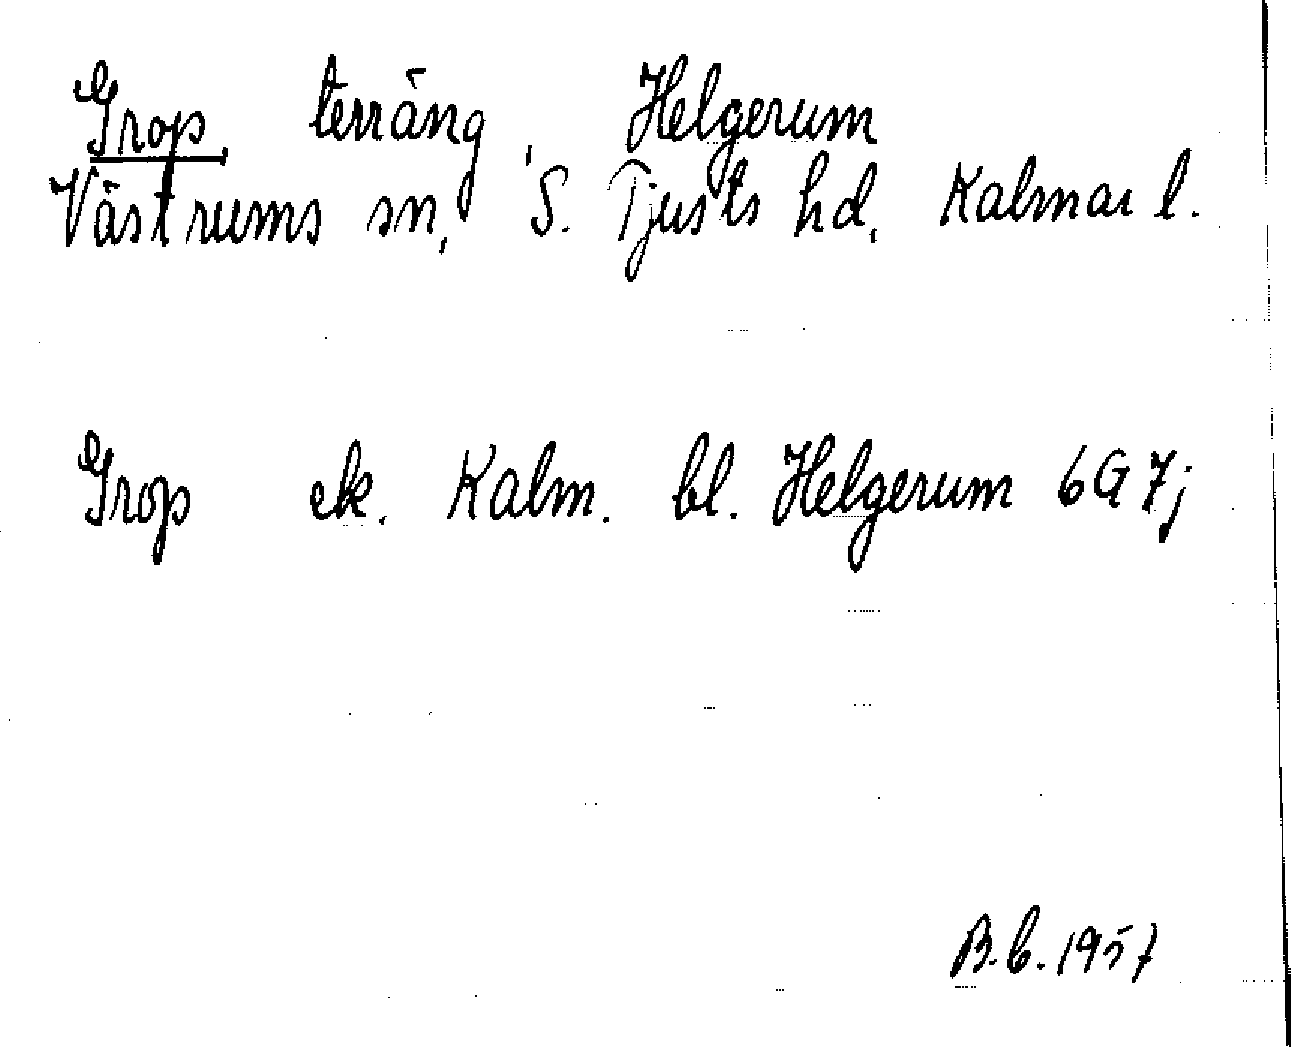 Grop, terräng, Helgerum
Västrums sn, S. Tjusts hd, Kalmar l.
Grop ek. Kalm. bl. Helgerum 6G 7j
B.b. 1957